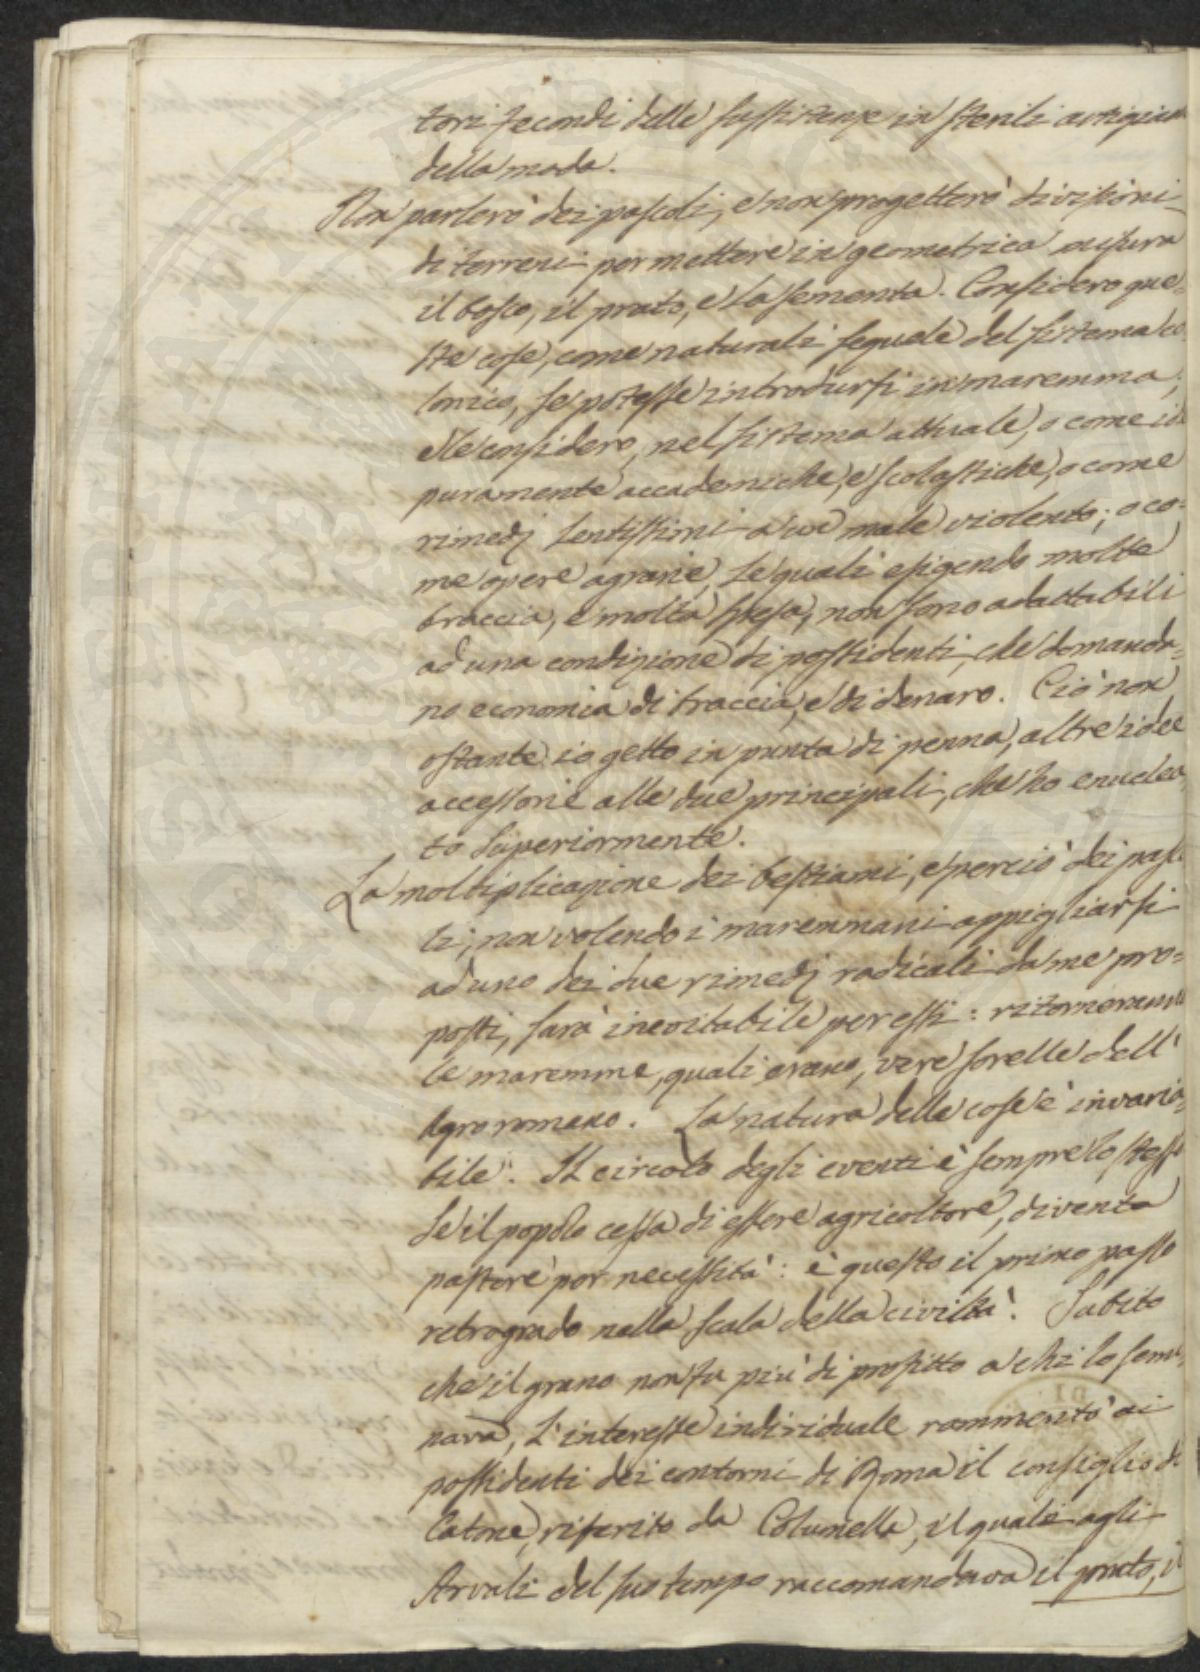 tori fecondi delle sussistenze in sterili artigiani
della moda.
Non parlerò dei pascoli, e non progetterò divisioni
di terreni per mettere in geometrica misura
il bosco, il prato, e la sementa. Considero que=
ste cose, come naturali sequele del sistema co
lonico, se potesse introdursi in maremma;
e le considero, nel sistema attuale, o come
puramente accademiche, e scolastiche, o come
rimedj lentissimi a un male violento; o co=
me opere agrarie, le quali esigendo molte
braccia, e molta spesa, non sono adattabili
ad una condizione di possidenti, che domanda=
no economia di braccia, e di denaro. Ciò non
ostante io getto in punta di penna, altre idee
accessorie alle due principali, che ho enuclea
to superiormente.
La moltiplicazione dei bestiami, e perciò dei pasco
li, non volendo i maremmani appigliarsi
ad uno dei due rimedj radicali da me pro=
posti, sarà inevitabile per essi: ritorneranno
le maremme, quali erano, vere sorelle dell'
Agro romano. La natura delle cose è invaria
bile. Il circolo degli eventi è sempre lo stesso
Se il popolo cessa di essere agricoltore, diventa
pastore por necessità: è questo il primo passo
retrogrado nella scala della civiltà. Subito
che il grano non fu più di profitto a chi lo semi
nava, l'interesse individuale rammentò ai
possidenti dei contorni di Roma il consiglio di
Catone, riferito da Columella, il quale agli
Arvali del suo tempo raccomandava il prato, il